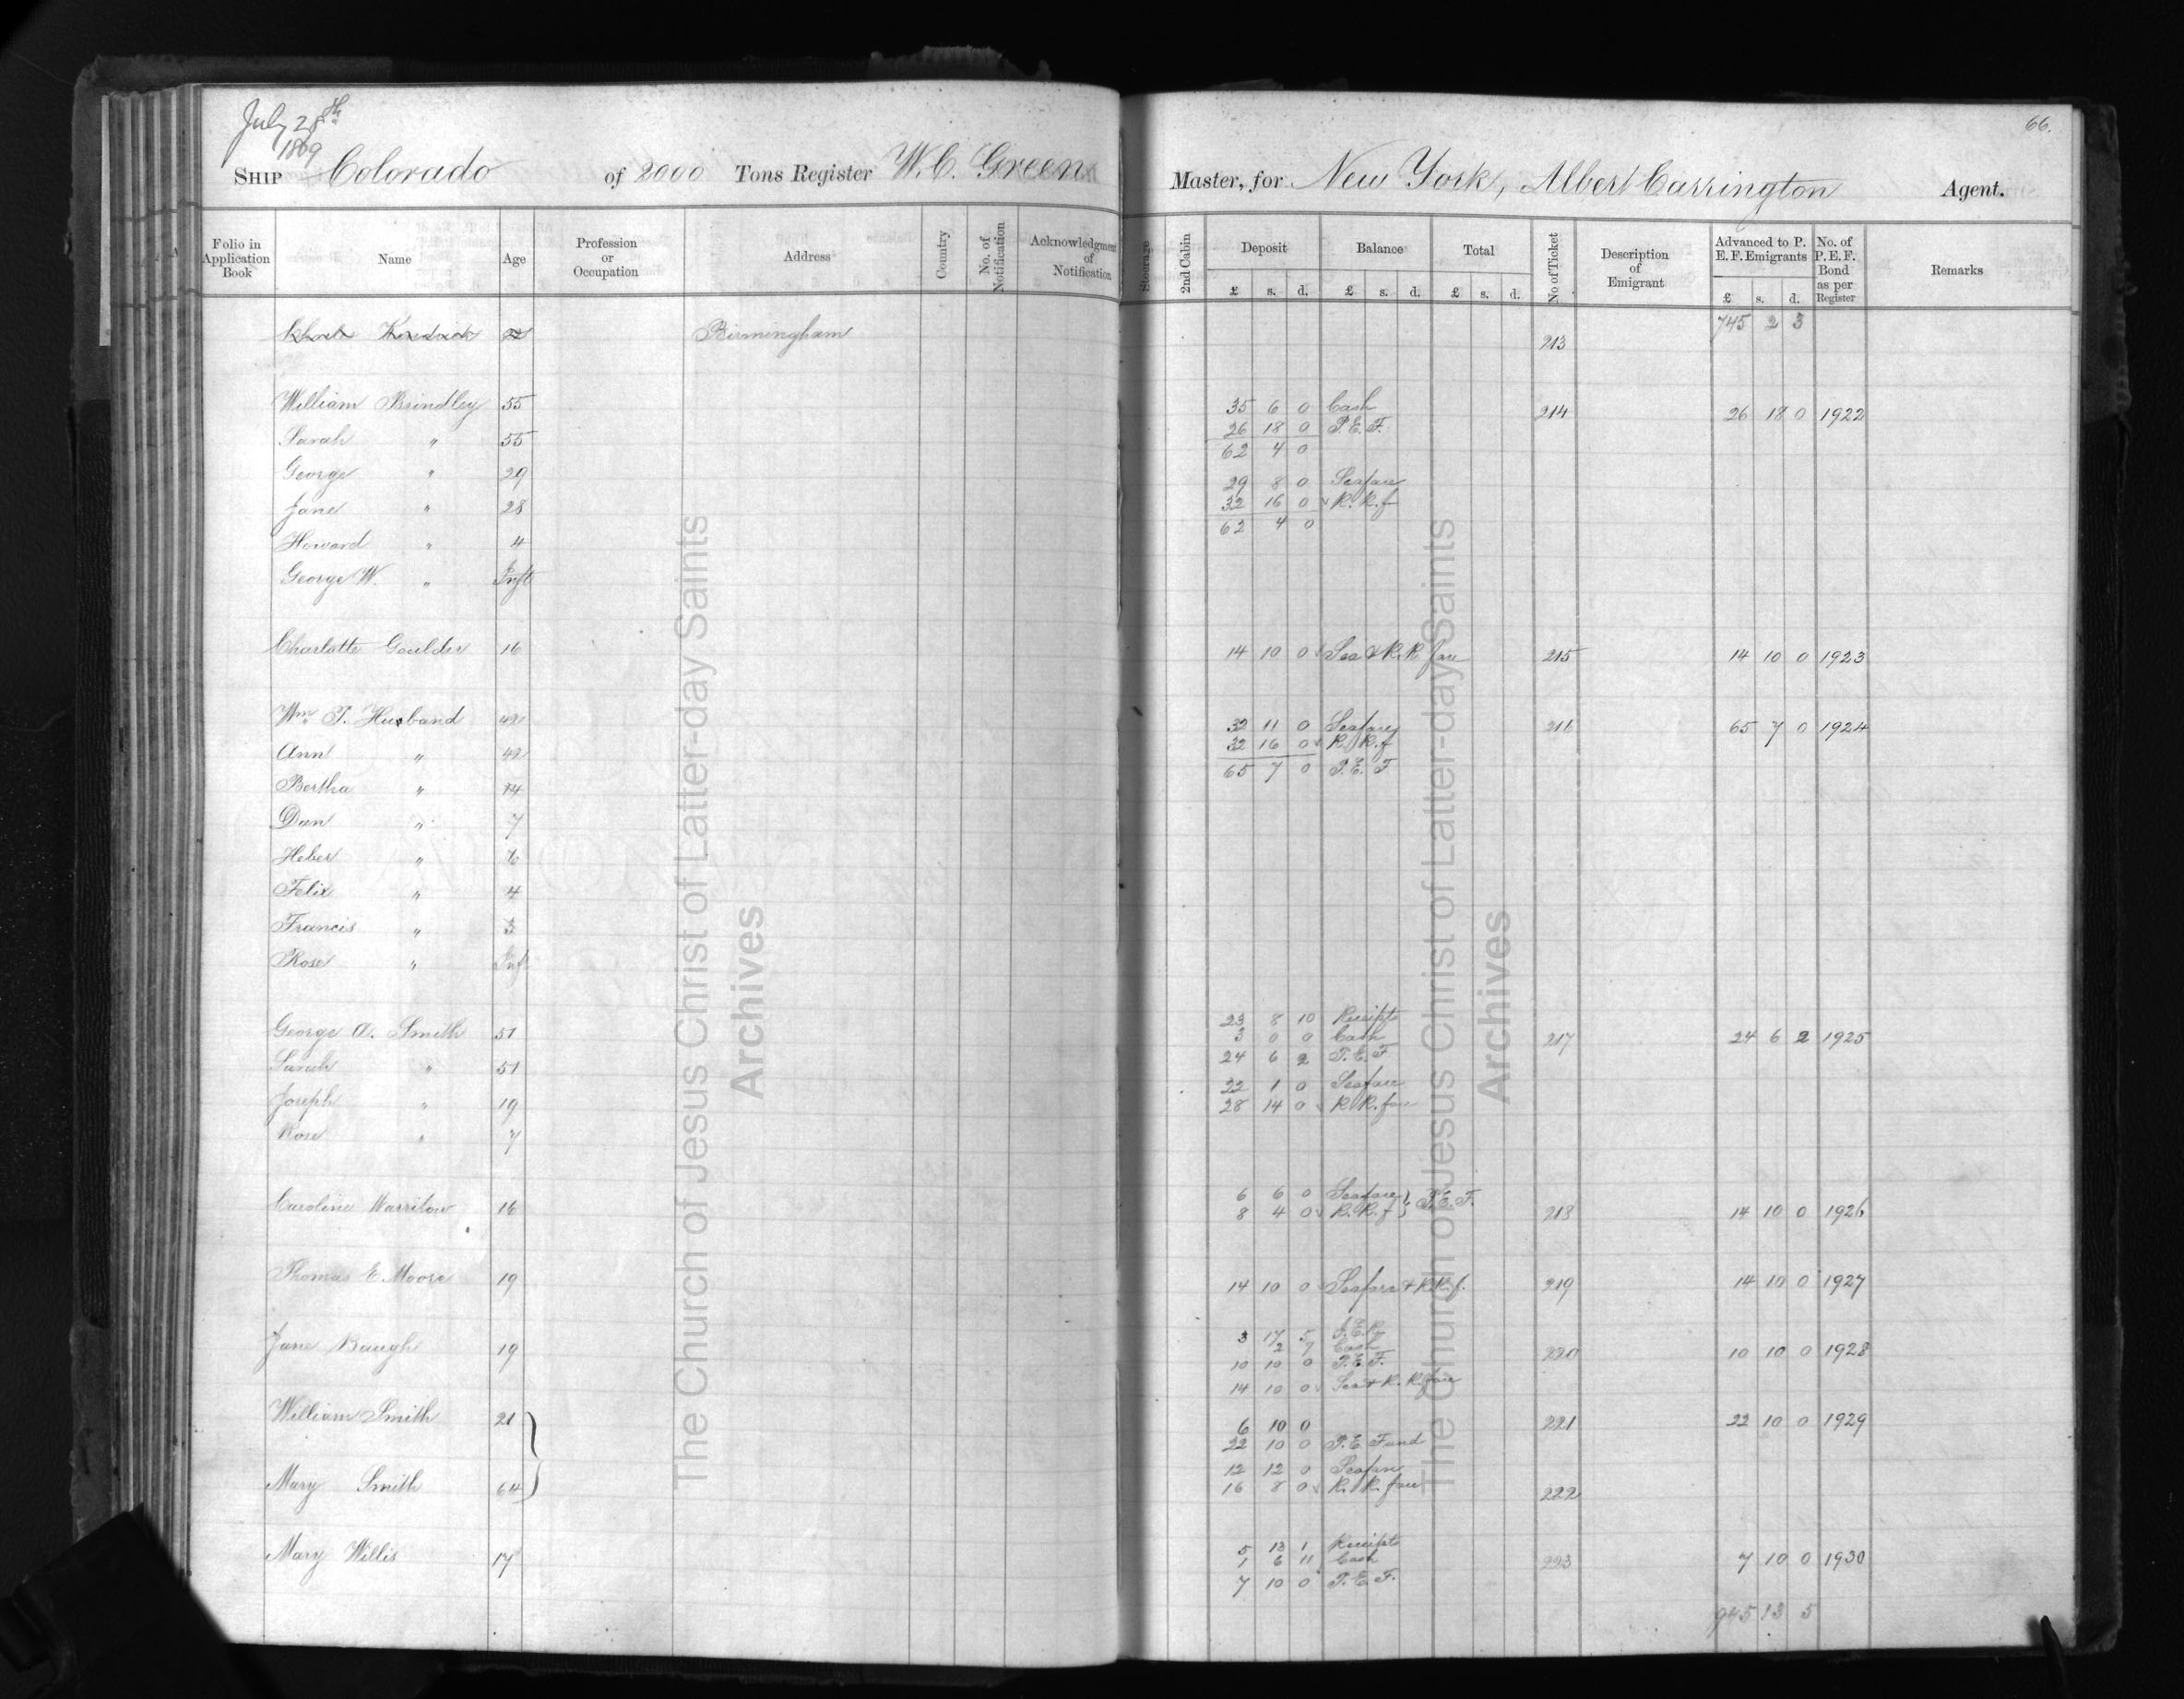 July 28th
1869
66.
SHIP Colorado of 2000 Tons Register W. C. Green Master, for New York, Albert Carrington Agent.
Folio in Application Book Name Age Profession or Occupation Address Country No. of Notification Acknowledgment of Notification Steerage 2nd Cabin Deposit Balance Total No of Ticket Description of Emigrant Advanced to P. E. F. Emigrants No. of P. E. F. Bond as per Register Remarks
£ s. d. £ s. d. £ s. d. £ s. d.
745 2 3
Birmingham 213
William Brindley 55 35 6 0 Cash 214 26 18 0 1922
26 18 0 P. E. F.
Sarah " 55 62 4 0
George " 29 29 8 0 Seafare
Jane " 28 32 16 0 R. R. f
62 4 0
Howard " 4
George W. " Inft
Charlotte Goulder 16 14 10 0 Sea & R. R fare 215 14 10 0 1923
Wm. T. Husband 42 32 11 0 Seafare 216 65 7 0 1924
Ann " 42 32 16 0 R. R. f
65 7 0 P. E. F
Bertha " 14
Dan " 7
Heber " 6
Felix " 4
Francis " 3
Rose " Inf
23 8 10 Receipts
George A. Smith 51 3 0 0 Cash 217 24 6 2 1925
24 6 2 P. E. F
Sarah " 51 22 1 0 Seafare
Joseph " 19 28 14 0 R. R. fare
Rose " 7
6 6 0 Seafare } P. E. F.
Caroline Warrilow 16 8 4 0 R. R. f 218 14 10 0 1926
Thomas E. Moore 19 14 10 0 Seafare & R. R. f. 219 14 10 0 1927
3 17 5
Jane Baugh 19 2 7 Cash 220 10 10 0 1928
10 10 0 P. E. F.
14 10 0 Sea & R. R. fare
William Smith 21 6 10 0 221 22 10 0 1929
22 10 0 P. E. Fund
12 12 0 Seafare
Mary Smith 64 16 8 0 R. R. fare 222
5 13 1 Receipts
Mary Willis 17 1 6 11 Cash 223 7 10 0 1930
7 10 0 P. E. F.
945 13 5
The Church of Jesus Christ of Latter-day Saints
Archives
The Church of Jesus Christ of Latter-day Saints
Archives